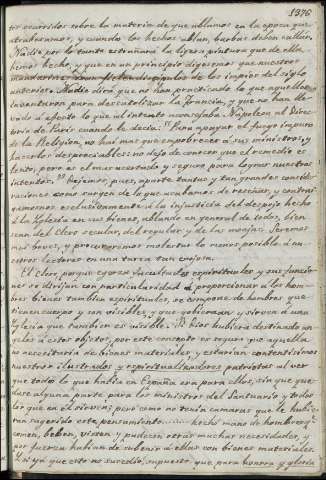 1376
tos ocurridos sobre la materia de que ablamos en la epoca que
atrabesamos, y cuando los hechos ablan, barbas deben callar.
Nadie por lo tanto estrañará la ligera pintura que de ella
hemos hecho, y que en un principio digesemos que nuestros
mandarines eran fieles discipulos de los impios del siglo
anterior. Nadie dirá que no han practicado lo que aquellos
inventaron para descatolizar la Francia, y que no han lle-
vado á efecto lo que al intento aconsejaba Napoleon al Direc-
torio de Paris cuando le decia: "Para apagar el fuego impuro
de la Religion, no hai mas que empobrecer a sus ministros, y
hacerlos despreciables: no dejo de conocer que el remedio es
lento, pero es el mas acertado y seguro para lograr nuestros
intentos." Dejemos, pues, aparte tantas y tan grandes conside-
raciones como surgen de lo que acabamos de reseñar, y contrai-
gamonos esclusivamente á la injusticia del despojo hecho
á la Iglesia en sus bienes, ablando en general de todos, bien
sean del Clero secular, del regular y de las monjas. Seremos
mui breves, y procuraremos molestar lo menos posible á nu-
estros lectores en una tarea tan enojosa.
El Clero, porque egerza facultades espirituales, y sus funcio-
nes se dirijan con particularidad á proporcionar a los hom-
bres bienes tambien espirituales, se compone de hombres que
tienen cuerpo y son visibles, y que gobiernan y sirven á una
Iglesia que tambien es visible. Si Dios hubiera destinado an-
geles á estos objetos, por este concepto es seguro que aquella
no necesitaria de bienes materiales, y estarian contentisimos
nuestros ilustrados y espiritualizadores patriotas al ver
que todo lo que habia en España era para ellos, sin que que-
dase alguna parte para los ministros del Santuario y todos
los que en el sirven; pero como no tenia camaras que le hubie-
ran sugerido este pensamiento hechó mano de hombres q.e
comen, beben, visten y padecen otras muchas necesidades, y
por fuerza habian de subvenir á ellas con bienes materiales.
Y si ya que esto no sucedió, supuesto que para honra y gloria